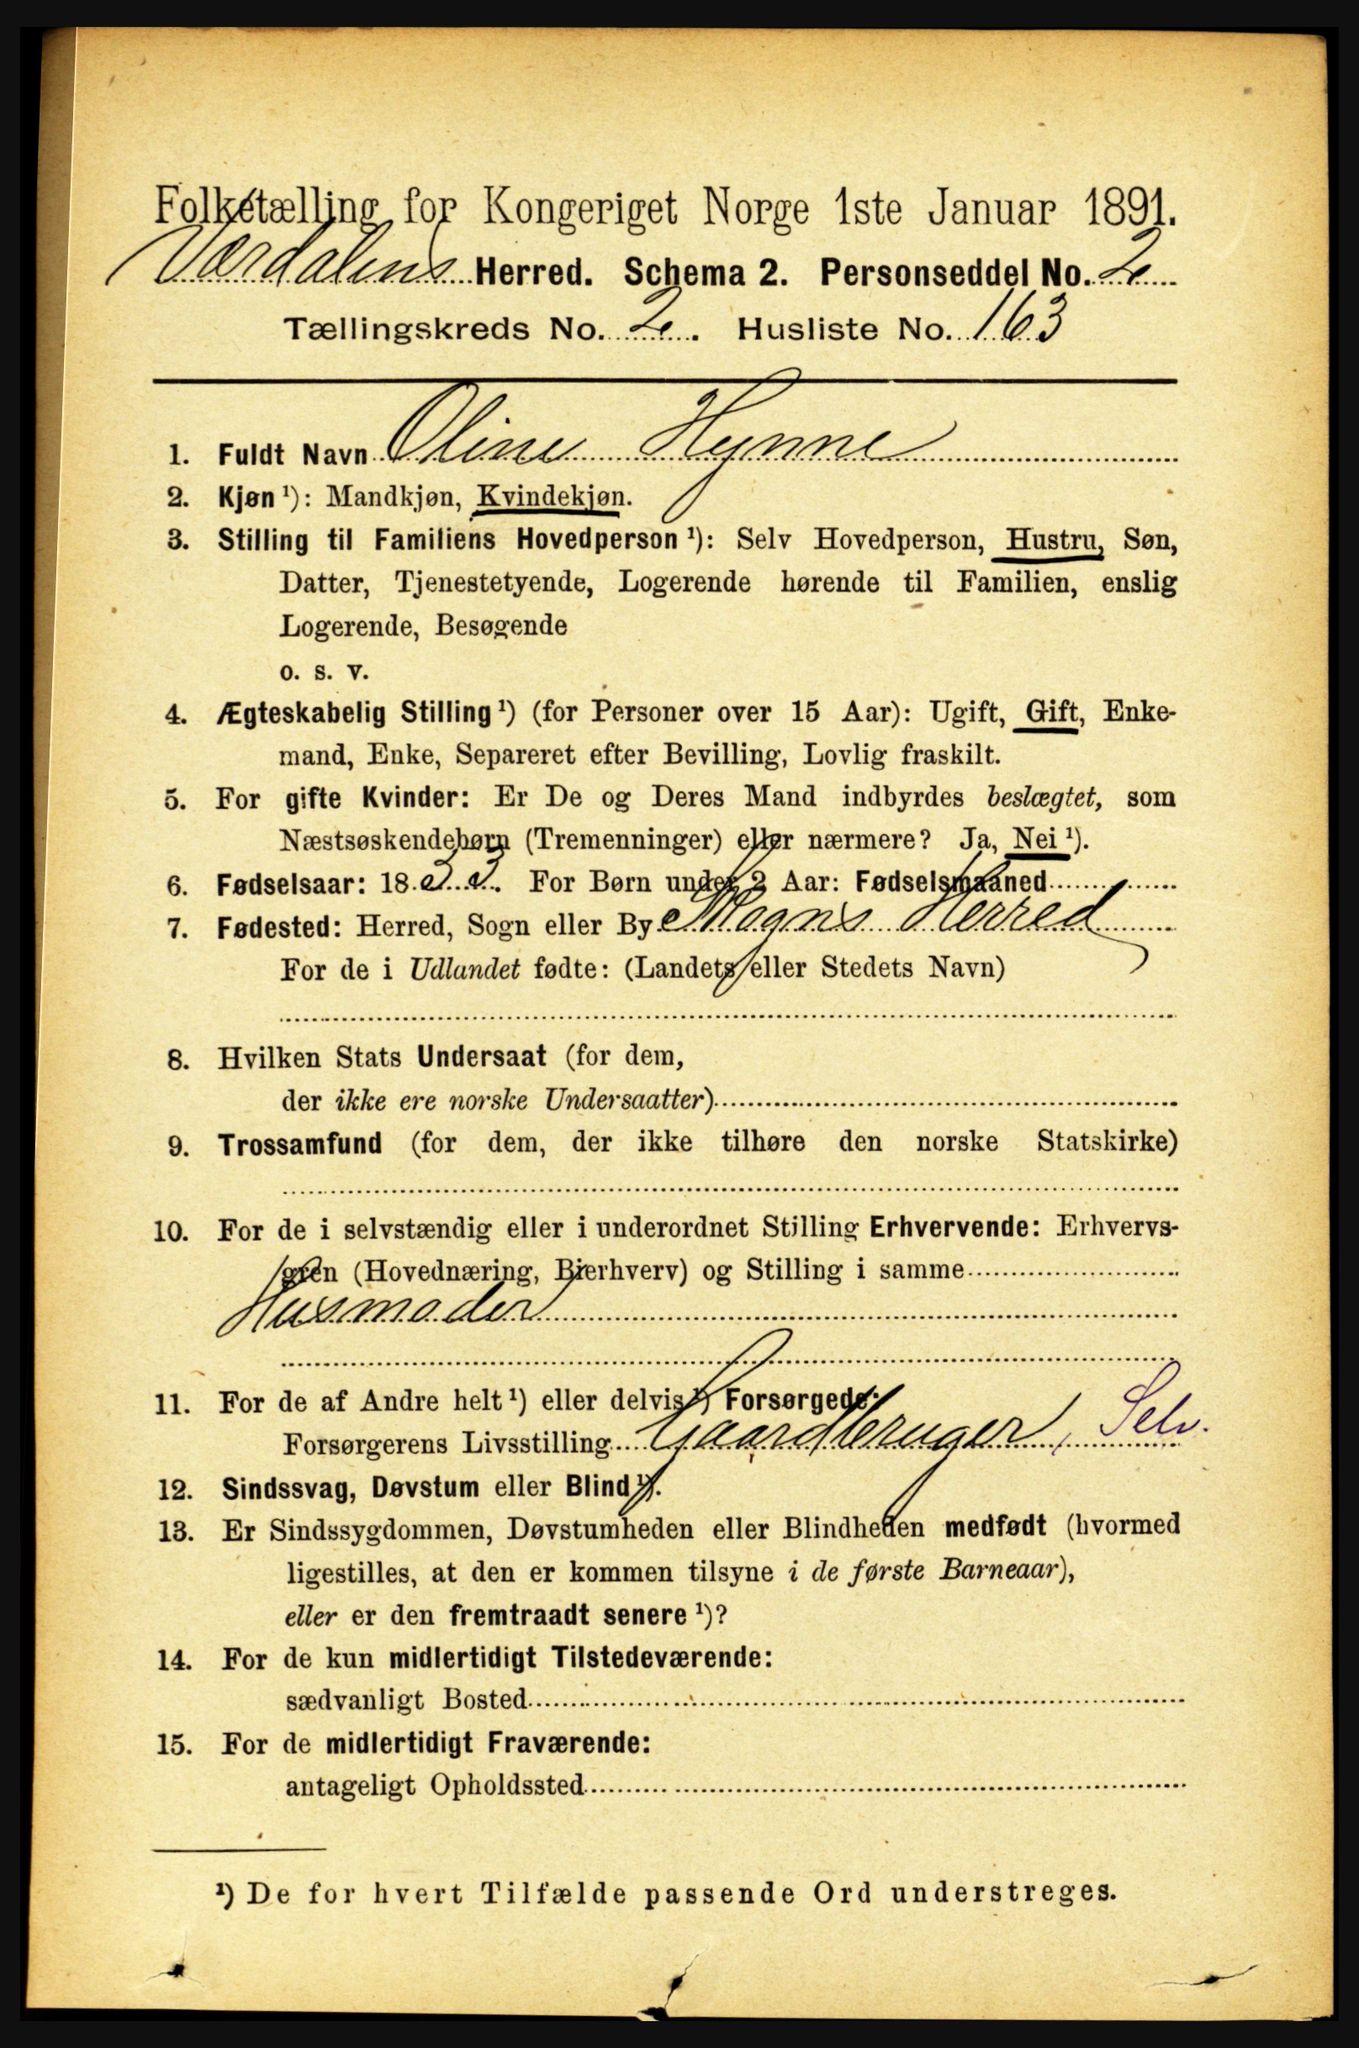 Folketælling for Kongeriget Norge 1ste Januar 1891.
Værdalens Herred. Schema 2. Personseddel No. 2
Tællingskreds No. 2. Husliste No. 163
1. Fuldt Navn Oline Hynne
2. Kjøn ¹): Mandkjøn, Kvindekjøn.
3. Stilling til Familiens Hovedperson ¹): Selv Hovedperson, Hustru, Søn,
Datter, Tjenestetyende, Logerende hørende til Familien, enslig
Logerende, Besøgende
o. s. v.
4. Ægteskabelig Stilling ¹) (for Personer over 15 Aar): Ugift, Gift, Enke-
mand, Enke, Separeret efter Bevilling, Lovlig fraskilt.
5. For gifte Kvinder: Er De og Deres Mand indbyrdes beslægtet, som
Næstsøskendebørn (Tremenninger) eller nærmere? Ja, Nei ¹).
6. Fødselsaar: 1833. For Børn under 2 Aar: Fødselsmaaned
7. Fødested: Herred, Sogn eller By Skogns Herred
For de i Udlandet fødte: (Landets eller Stedets Navn)
8. Hvilken Stats Undersaat (for dem,
der ikke ere norske Undersaatter)
9. Trossamfund (for dem, der ikke tilhøre den norske Statskirke)
10. For de i selvstændig eller i underordnet Stilling Erhvervende: Erhvervs-
gren (Hovednæring, Bierhverv) og Stilling i samme
Husmoder
11. For de af Andre helt ¹) eller delvis ¹) Forsørgede:
Forsørgerens Livsstilling Gaardbruger, Selv.
12. Sindssvag, Døvstum eller Blind ¹).
13. Er Sindssygdommen, Døvstumheden eller Blindheden medfødt (hvormed
ligestilles, at den er kommen tilsyne i de første Barneaar),
eller er den fremtraadt senere ¹)?
14. For de kun midlertidigt Tilstedeværende:
sædvanligt Bosted
15. For de midlertidigt Fraværende:
antageligt Opholdssted
¹) De for hvert Tilfælde passende Ord understreges.